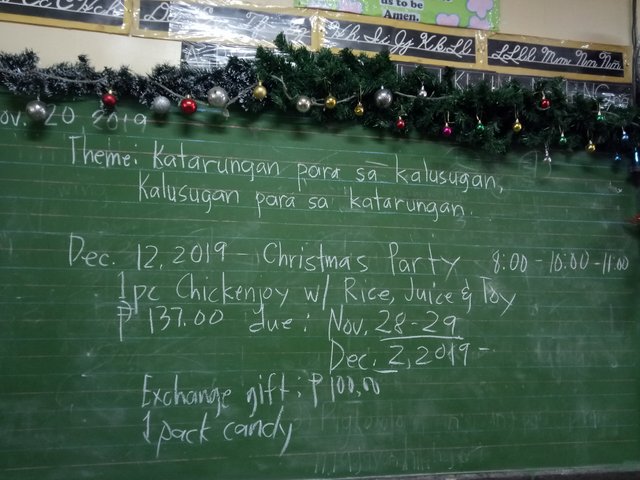 us to be
Amen.
Hh Ii Jj Kk Ll
Ll Ll Mm Nn Ññ
Nov. 20 2019
Theme: Katarungan para sa kalusugan,
Kalusugan para sa katarungan.
Dec. 12, 2019 - Christmas Party 8:00 - 10:00 - 11:00
1pc Chickenjoy w/ Rice, Juice & Toy
₱ 137.00 due: Nov. 28-29
Dec. 2, 2019 -
Exchange gift: ₱100.00
1 pack candy